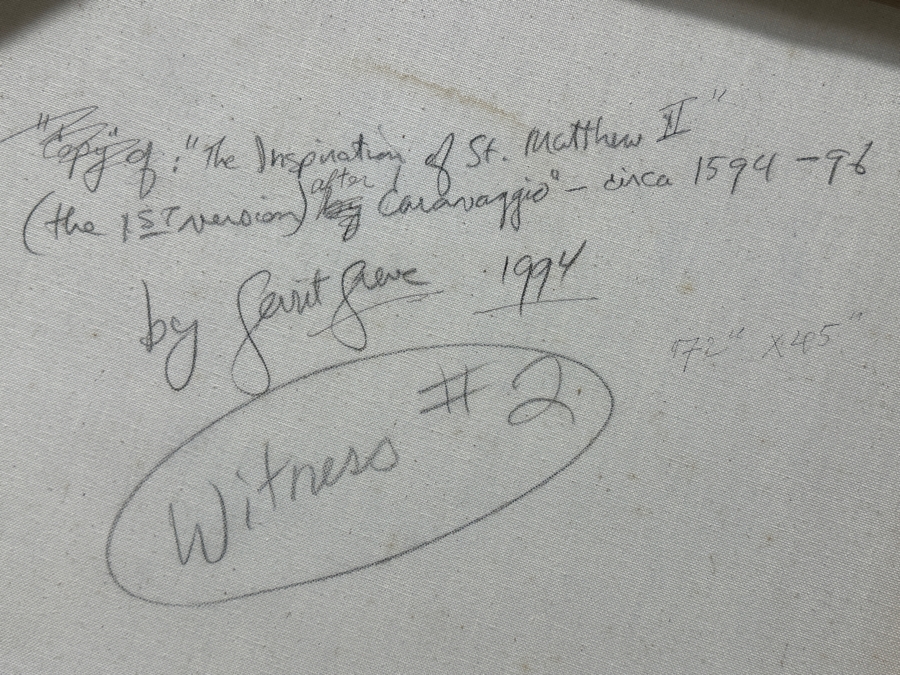 "Copy" of: "The Inspiration of St. Matthew II"
(the 1ST version) after by Caravaggio" – circa 1594–96
by Gerrit Greve 1994
"72" x 45"
Witness # 2